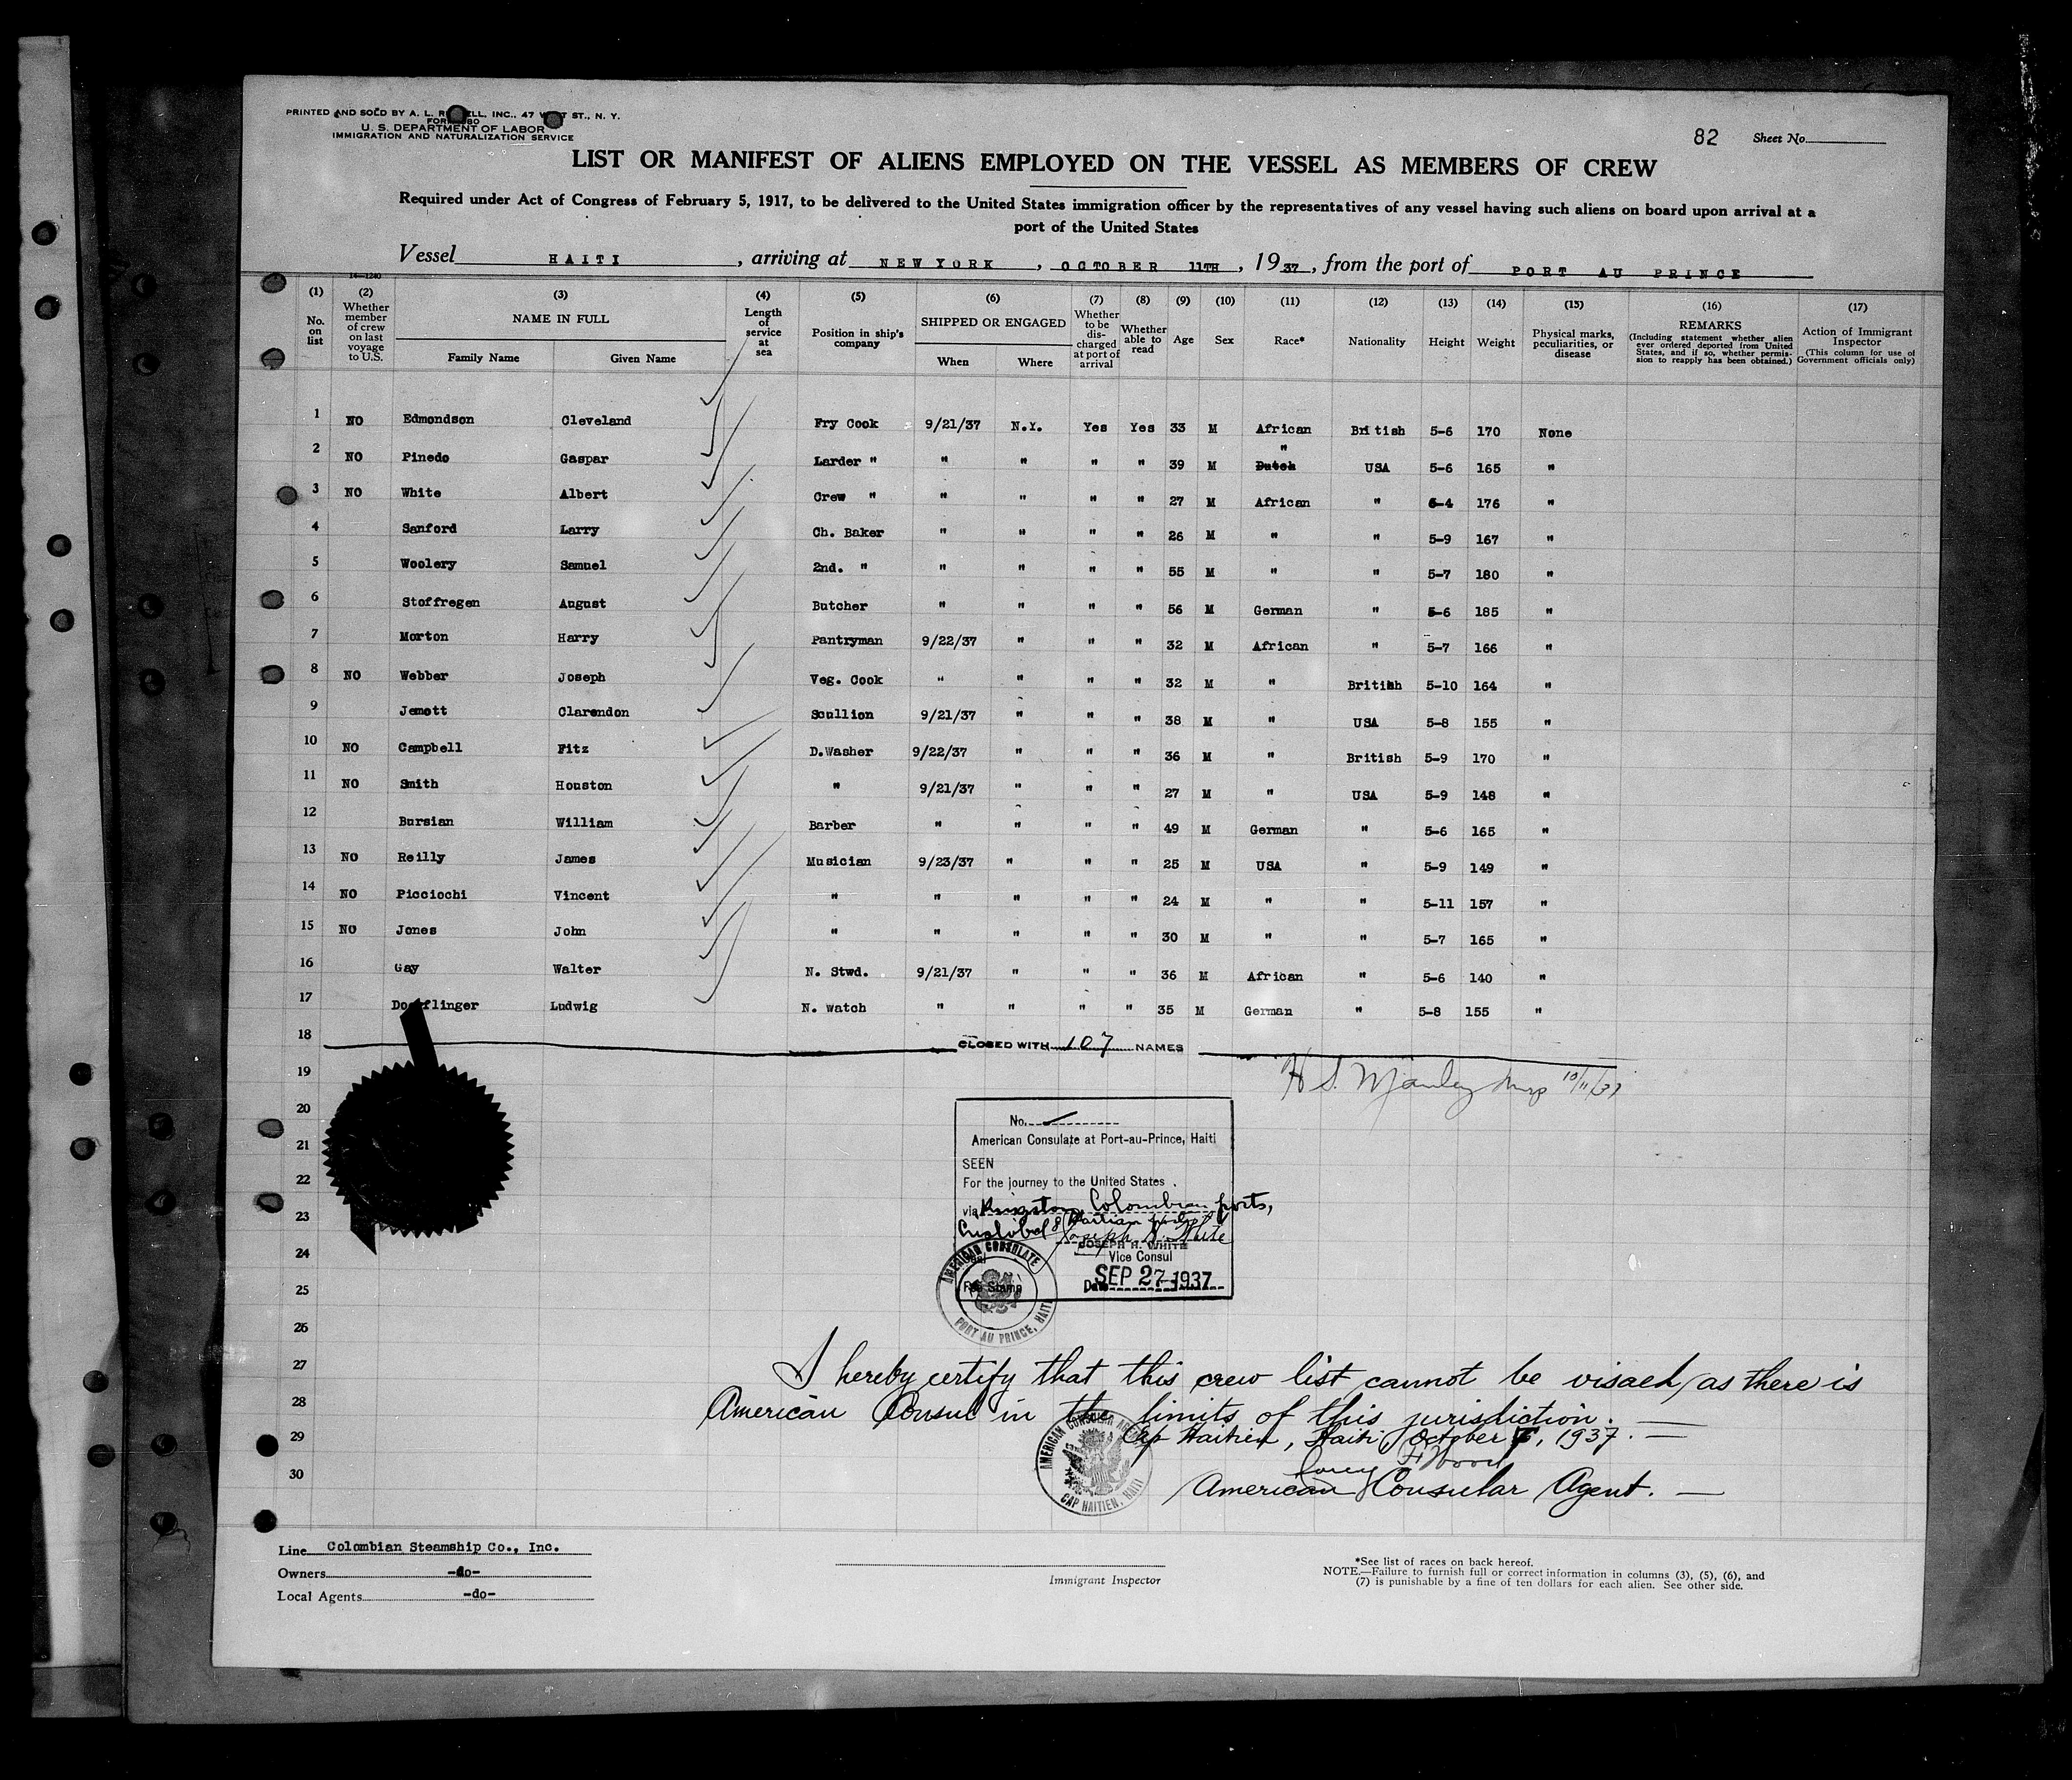 PRINTED AND SOLD BY A. L. R ELL, INC., 47 W ST., N. Y.
FORM 80
U. S. DEPARTMENT OF LABOR
IMMIGRATION AND NATURALIZATION SERVICE
82 Sheet No.
LIST OR MANIFEST OF ALIENS EMPLOYED ON THE VESSEL AS MEMBERS OF CREW
Required under Act of Congress of February 5, 1917, to be delivered to the United States immigration officer by the representatives of any vessel having such aliens on board upon arrival at a
port of the United States
Vessel HAITI, arriving at NEW YORK, OCTOBER 11TH, 1937, from the port of PORT AU PRINCE
14—1240
(1) (2) (3) (4) (5) (6) (7) (8) (9) (10) (11) (12) (13) (14) (15) (16) (17)
No. on list
Whether member of crew on last voyage to U.S.
NAME IN FULL
Family Name Given Name
Length of service at sea
Position in ship's company
SHIPPED OR ENGAGED
When Where
Whether to be discharged at port of arrival
Whether able to read
Age Sex Race* Nationality Height Weight
Physical marks, peculiarities, or disease
REMARKS
(Including statement whether alien ever ordered deported from United States, and if so, whether permission to reapply has been obtained.)
Action of Immigrant Inspector
(This column for use of Government officials only)
1 NO Edmondson Cleveland Fry Cook 9/21/37 N.Y. Yes Yes 33 M African British 5-6 170 None
2 NO Pinedo Gaspar Larder " " " " " 39 M Dutch " USA 5-6 165 "
3 NO White Albert Crew " " " " " 27 M African " 6-4 176 "
4 Sanford Larry Ch. Baker " " " " 26 M " " 5-9 167 "
5 Woolery Samuel 2nd. " " " " " 55 M " " 5-7 180 "
6 Stoffregen August Butcher " " " " 56 M German " 5-6 185 "
7 Morton Harry Pantryman 9/22/37 " " " 32 M African " 5-7 166 "
8 NO Webber Joseph Veg. Cook " " " " 32 M " British 5-10 164 "
9 Jemott Clarendon Scullion 9/21/37 " " " 38 M " USA 5-8 155 "
10 NO Campbell Fitz D.Washer 9/22/37 " " " 36 M " British 5-9 170 "
11 NO Smith Houston " 9/21/37 " " " 27 M " USA 5-9 148 "
12 Bursian William Barber " " " " 49 M German " 5-6 165 "
13 NO Reilly James Musician 9/23/37 " " " 25 M USA " 5-9 149 "
14 NO Picciochi Vincent " " " " " 24 M " " 5-11 157 "
15 NO Jones John " " " " " 30 M " " 5-7 165 "
16 Gay Walter N. Stwd. 9/21/37 " " " 36 M African " 5-6 140 "
17 Do flinger Ludwig N. Watch " " " " 35 M German " 5-8 155 "
18 CLOSED WITH 107 NAMES
19 H S. Manley 10/11/37
20
No.
American Consulate at Port-au-Prince, Haiti
21
SEEN
22 For the journey to the United States.
via Kingston, Colombian ports,
23 Cristobal & Haitian ports
Joseph H. White
24 JOSEPH H. WHITE
Vice Consul
Fee Stamp
Date SEP 27 1937
25
AMERICAN CONSULATE
PORT AU PRINCE, HAITI
26
27 I hereby certify that this crew list cannot be visaed, as there is
28 American Consul in the limits of this jurisdiction. —
29 Cap Haitien, Haiti, October , 1937. —
Wood
30 American Consular Agent. —
AMERICAN CONSULAR AGENCY
CAP HAITIEN, HAITI
Line Colombian Steamship Co., Inc.
Owners -do-
Local Agents -do-
Immigrant Inspector
*See list of races on back hereof.
NOTE.—Failure to furnish full or correct information in columns (3), (5), (6), and
(7) is punishable by a fine of ten dollars for each alien. See other side.